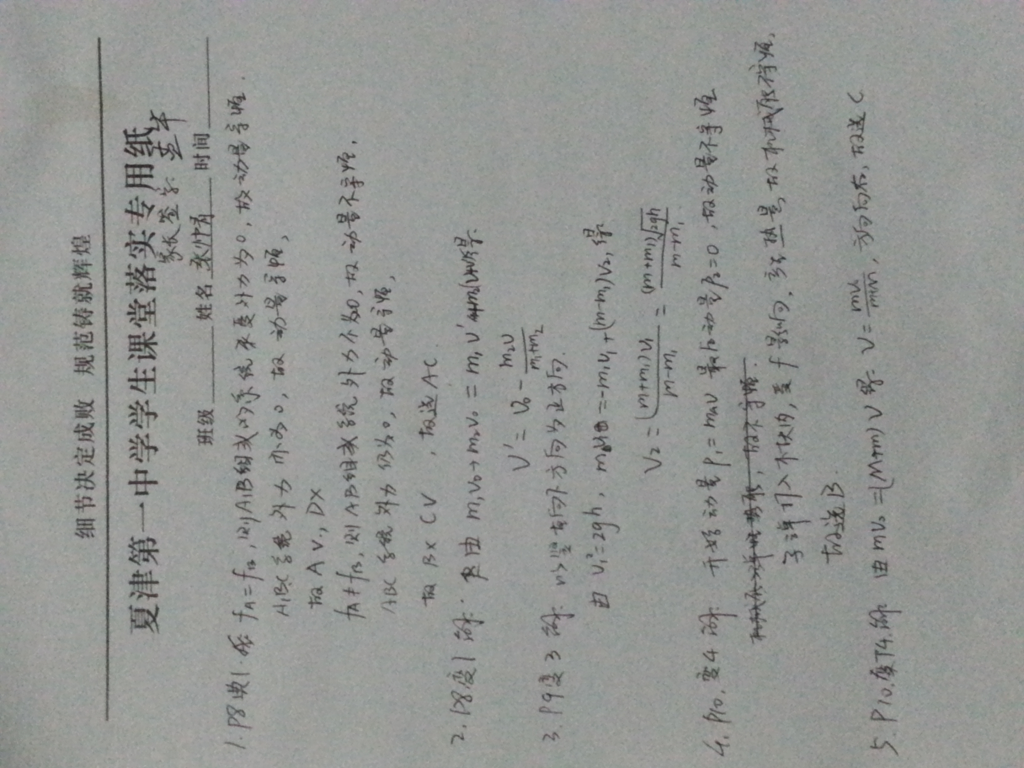 细节决定成败 规范铸就辉煌
夏津第一中学学生课堂落实专用纸
家长签名
班级 姓名 时间
1. P8典1.解 fA=fB, 则A、B组成的系统不受外力为0, 故动量守恒.
A、B、C系统外力亦为0, 故动量守恒,
故A√, D×
fA≠fB, 则AB组成系统外力不为0, 故动量不守恒,
ABC系统外力仍为0, 故动量守恒,
故B× C√, 故选AC.
2. P8变1 解: 由 m₁v₀+m₂v₀=m₁v'
v'=v₀-
3. P9变3 解: 以竖直向下方向为正方向.
由 v₁²=2gh, =-m₁v₁+(m-m₁)v₂, 得
v₂=(m+m₁)v₁/m-m₁=(m+m₁)√2gh/m-m₁
4. P10,变4解 开始动量p₁=mv 最后动量p₂=0, 故动量不守恒
子弹打入木块内, 受f影响, 系统热量, 故机械能不守恒,
故选B
5. P10.变T4.解 由mv₀=(M+m)v 得: v=mv₀/m+M, 方向向右, 故选C